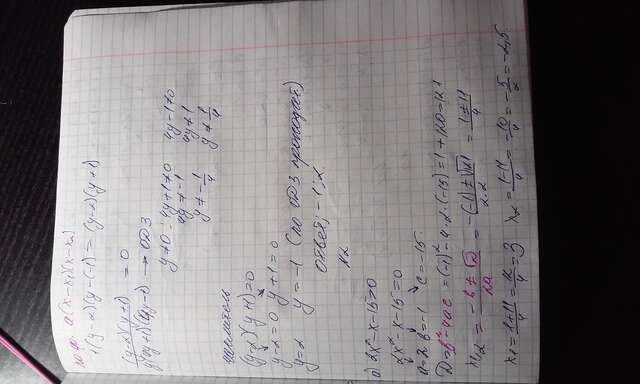 по ф. a(x-x₁)(x-x₂)
1(y-2)(y-(-1)=(y-2)(y+1)
(y-2)(y+1)/y(4y+1)(4y-1) = 0
→ ОДЗ
y≠0; 4y+1≠0 4y-1≠0
4y≠-1 4y≠1
y≠-1/4 y≠1/4
числитель
(y-2)(y+1)=0
y-2=0 y+1=0
y=2 y=-1 (по ОДЗ проходят)
Ответ; -1; 2.
N2
2x²-x-15>0
2x²-x-15=0
a=2 b=-1 c=-15.
D=b²-4ac=(-1)²-4·2·(-15)=1+120=121
x₁,₂ = -b±√D/2a = -(-1)±√121/2·2 = 1±11/4
x₁=1+11/4=12/4=3 x₂=1-11/4=-10/4=-5/2=-2,5